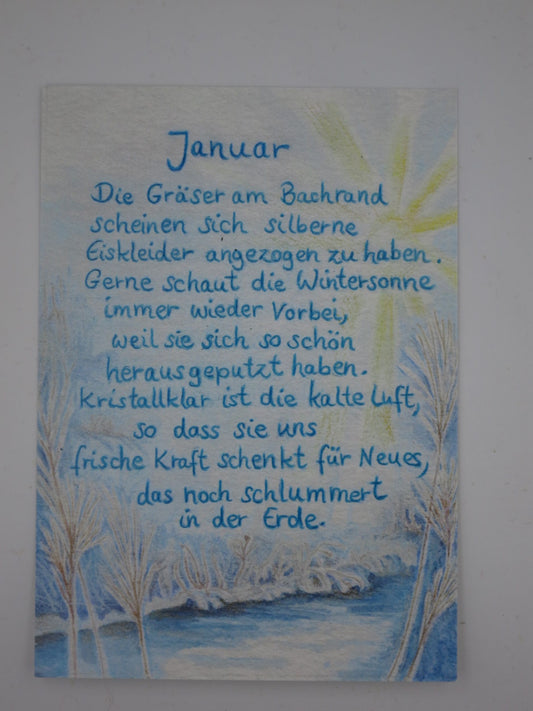 Januar
Die Gräser am Bachrand
scheinen sich silberne
Eiskleider angezogen zu haben.
Gerne schaut die Wintersonne
immer wieder Vorbei,
weil sie sich so schön
herausgeputzt haben.
Kristallklar ist die kalte Luft,
so dass sie uns
frische Kraft schenkt für Neues,
das noch schlummert
in der Erde.